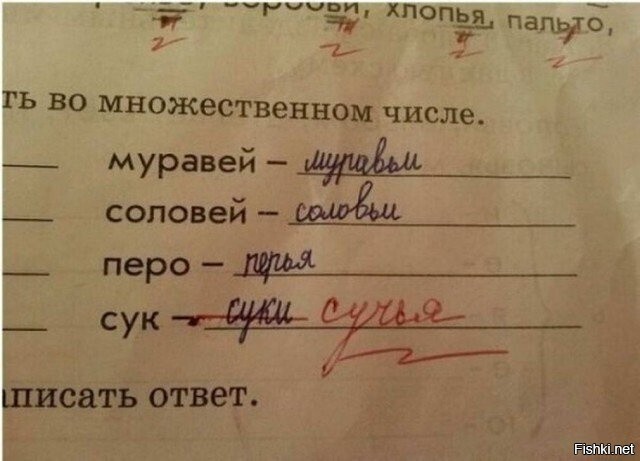 воробьи, хлопья, пальто,
ть во множественном числе.
муравей – муравьи
соловей – соловьи
перо – перья
сук – суки сучья
писать ответ.
Fishki.net